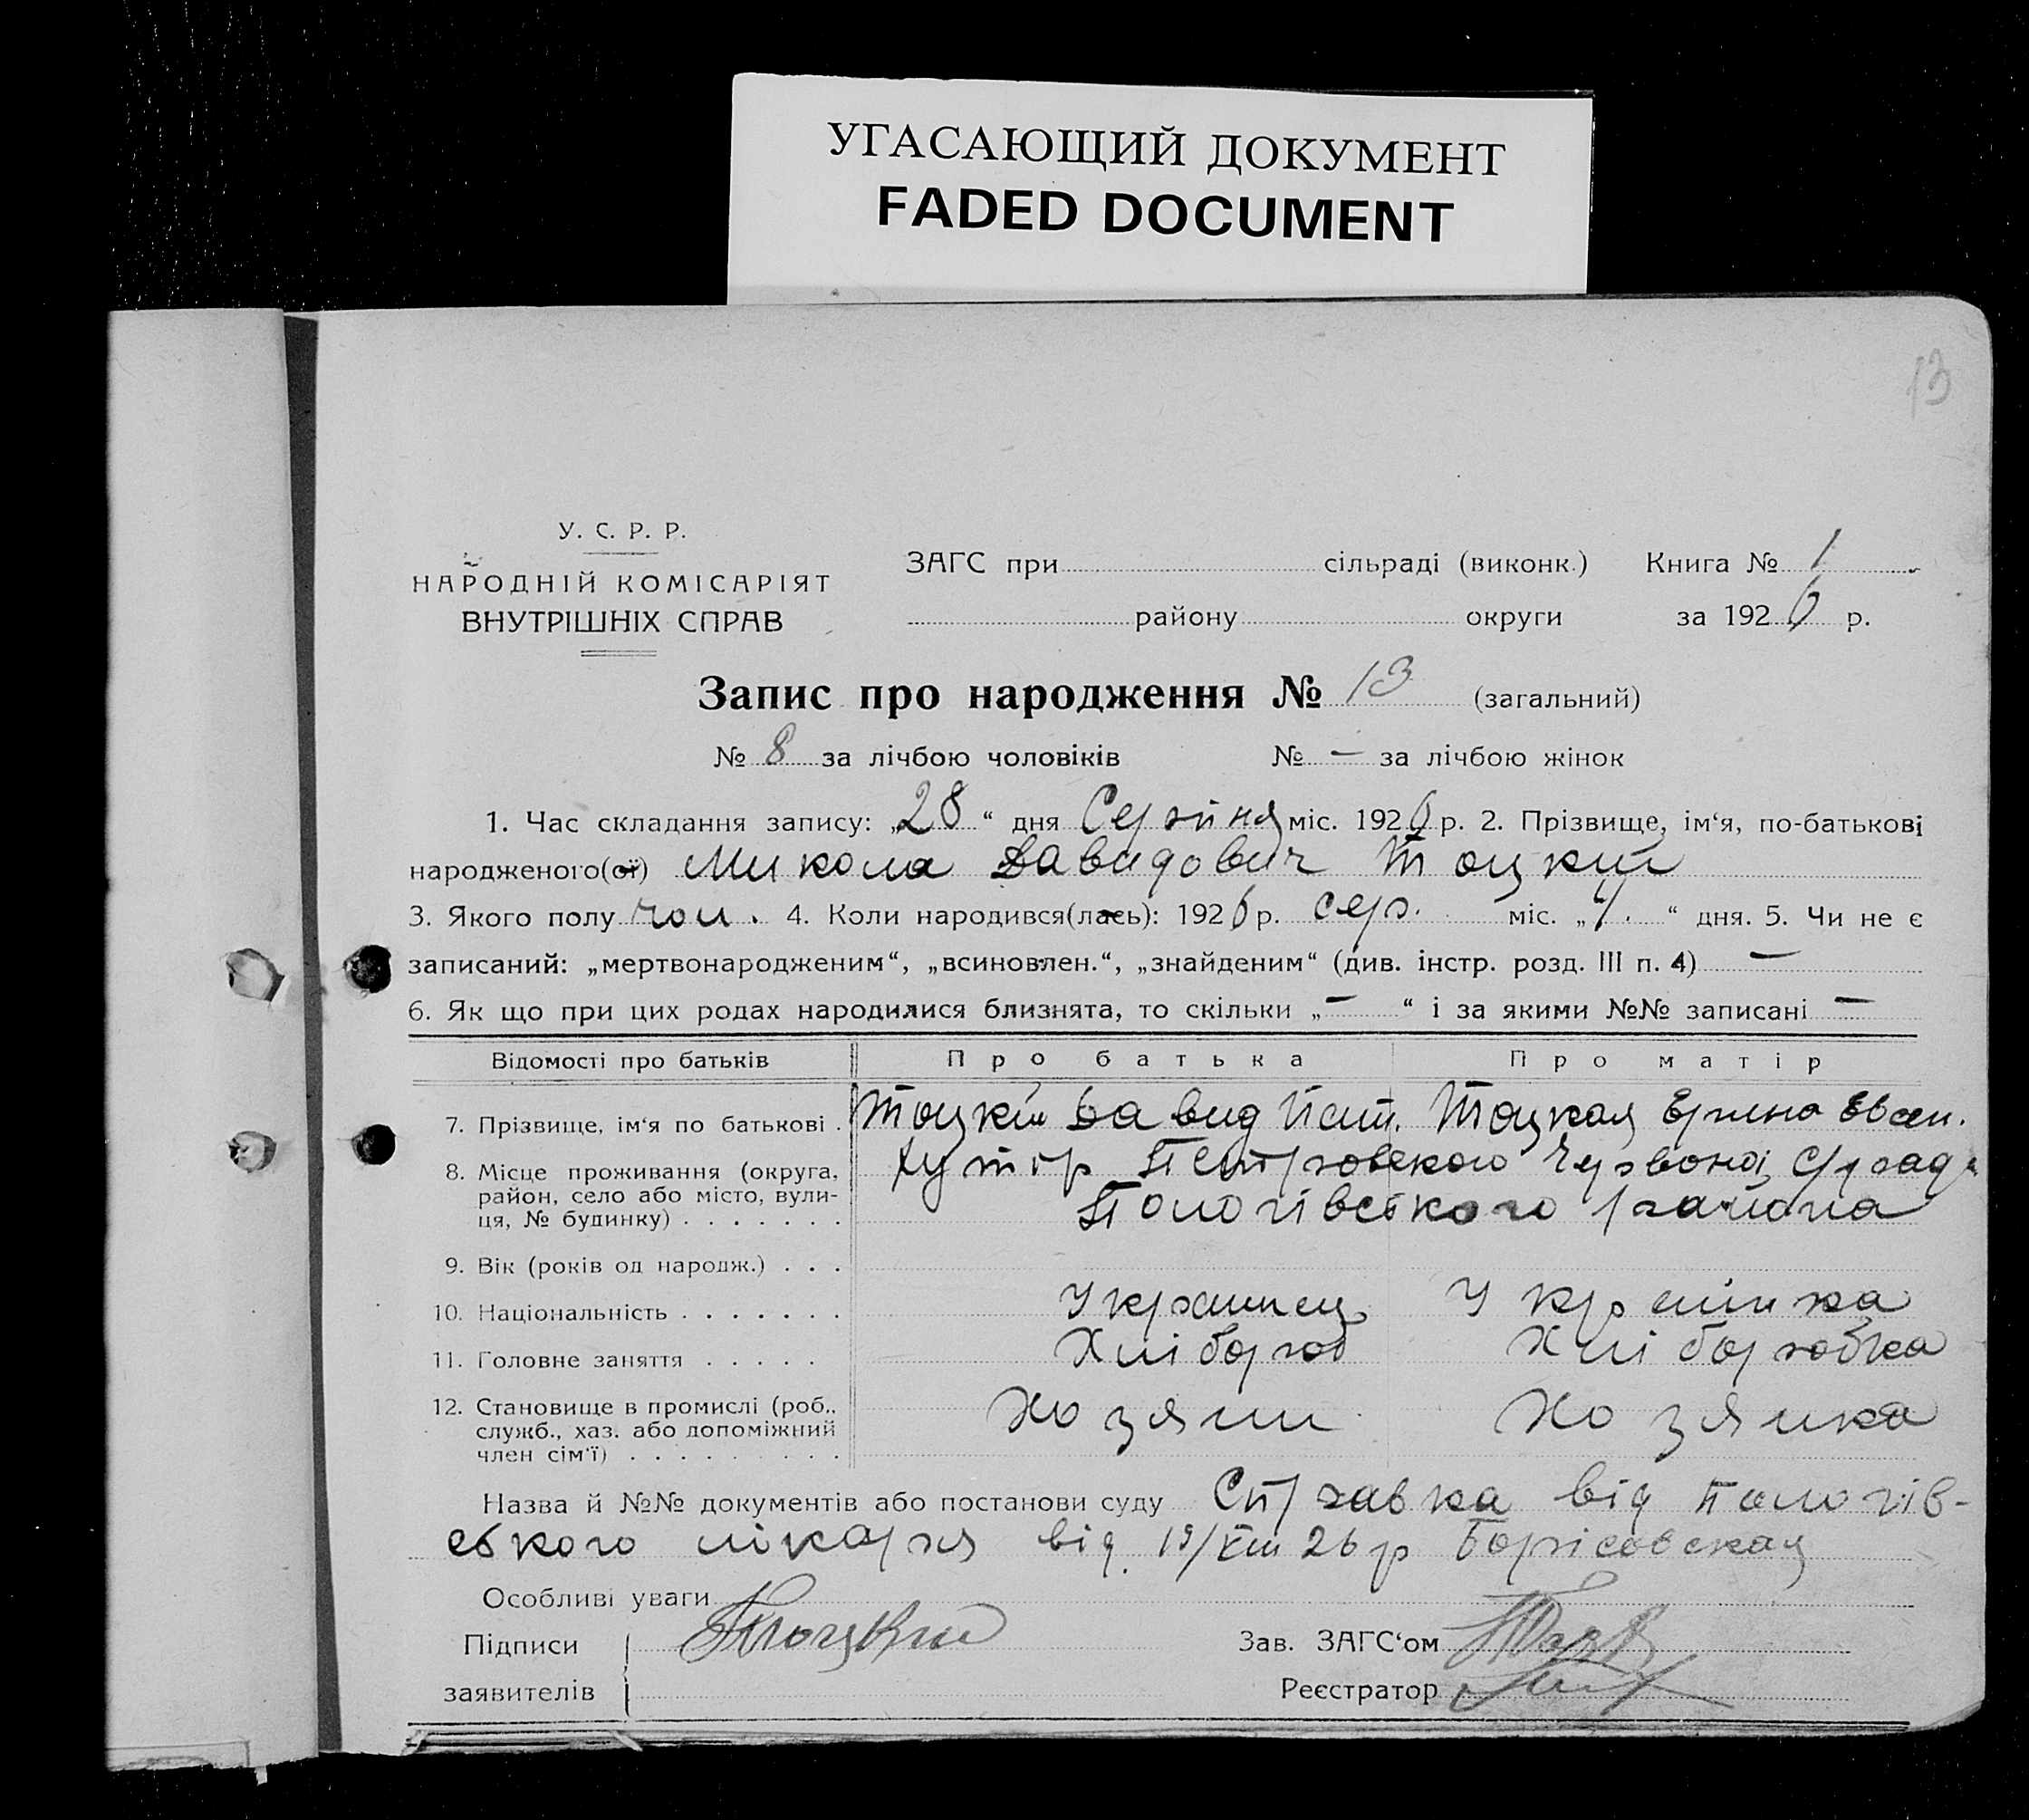 УГАСАЮЩИЙ ДОКУМЕНТ
FADED DOCUMENT
13
У. С. Р. Р.
НАРОДНІЙ КОМІСАРІЯТ
ВНУТРІШНІХ СПРАВ
ЗАГС при сільраді (виконк.) Книга № 1
району округи за 1926 р.
Запис про народження № 13 (загальний)
№ 8 за лічбою чоловіків № — за лічбою жінок
1. Час складання запису: „28“ дня Серпня міс. 1926 р. 2. Прізвище, ім‘я, по-батькові
народженого(ої) Микола Давидович Тоцкий
3. Якого полу чол. 4. Коли народився(лась): 1926 р. серп. міс. „ “ дня. 5. Чи не є
записаний: „мертвонародженим“, „всиновлен.“, „знайденим“ (див. інстр. розд. III п. 4) —
6. Як що при цих родах народилися близнята, то скільки „—“ і за якими №№ записані —
Відомості про батьків Про батька Про матір
7. Прізвище, ім‘я по батькові . Тоцкій Давид Тоцкая
8. Місце проживання (округа, хутір Петровського Червоної
район, село або місто, вули- Пологівського района
ця, № будинку) . . . . . . .
9. Вік (років од народж.) . . .
10. Національність . . . . . . . Українец Українка
11. Головне заняття . . . . . Хлібороб Хліборобка
12. Становище в промислі (роб., Хозяин Хозяика
служб., хаз. або допоміжний
член сім‘ї) . . . . . . . . .
Назва й №№ документів або постанови суду Справка від Пологів-
ського лікаря від 19/VIII 26 р Борісовская
Особливі уваги
Підписи Тоцкий Зав. ЗАГС‘ом
заявителів Реєстратор